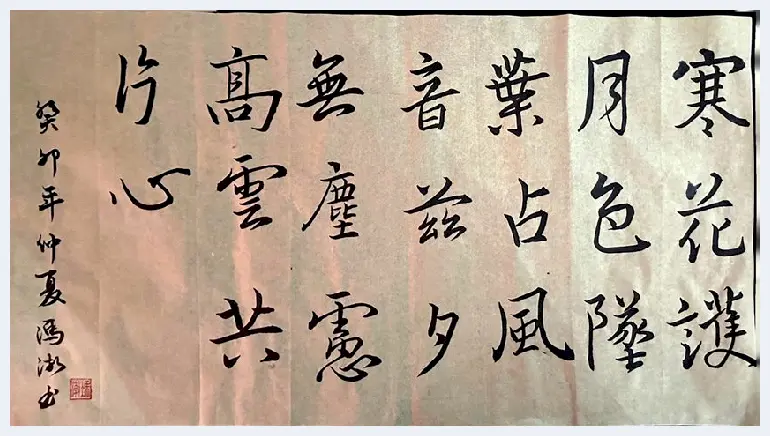 寒花護
月色墜
葉占風
音茲夕
無塵慮
髙雲共
片心
癸卯年仲夏馮书